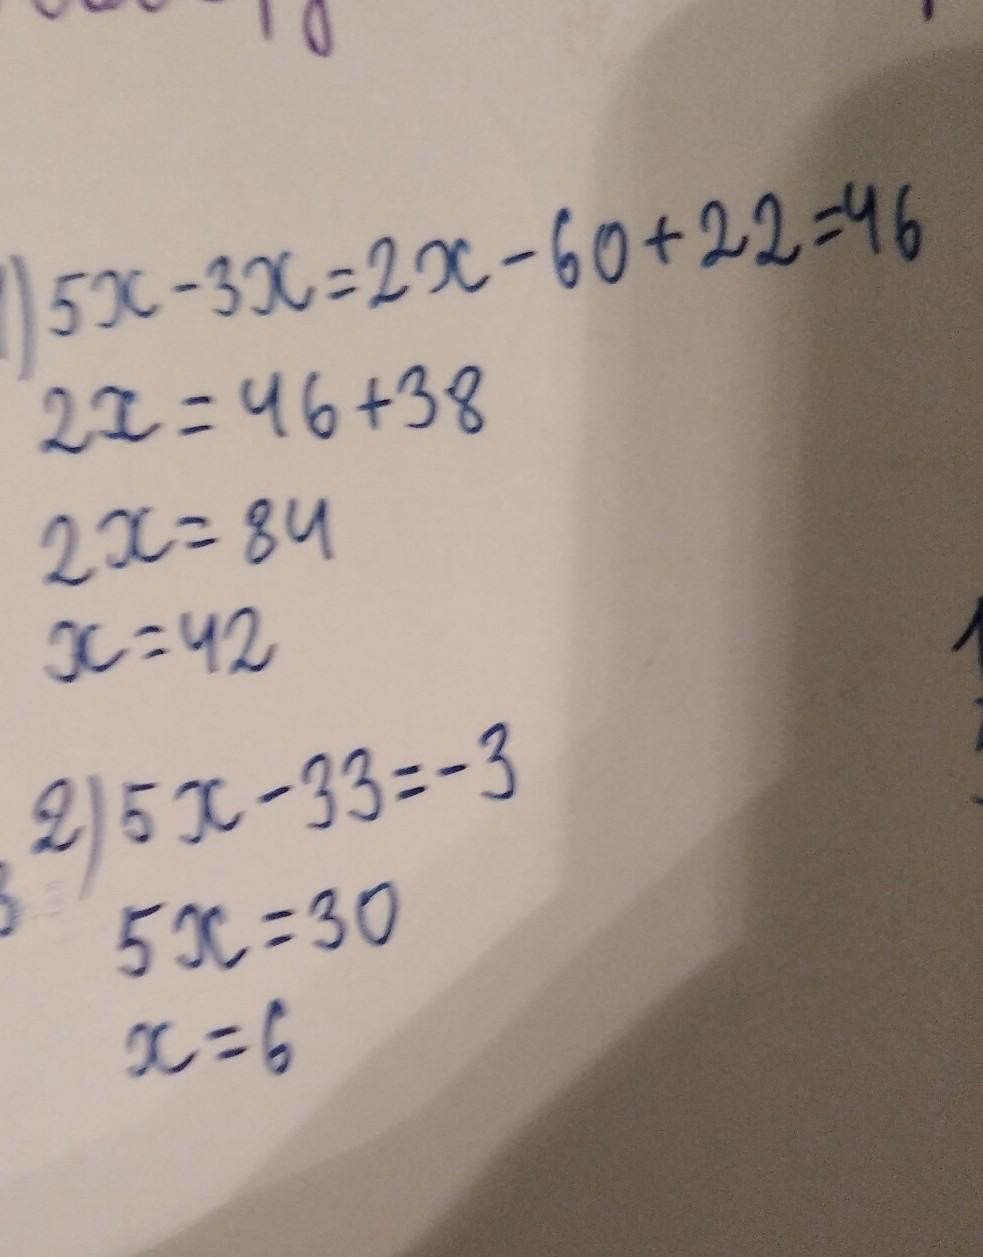 1) 5x-3x=2x-60+22=46
2x=46+38
2x=84
x=42
2) 5x-33=-3
5x=30
x=6